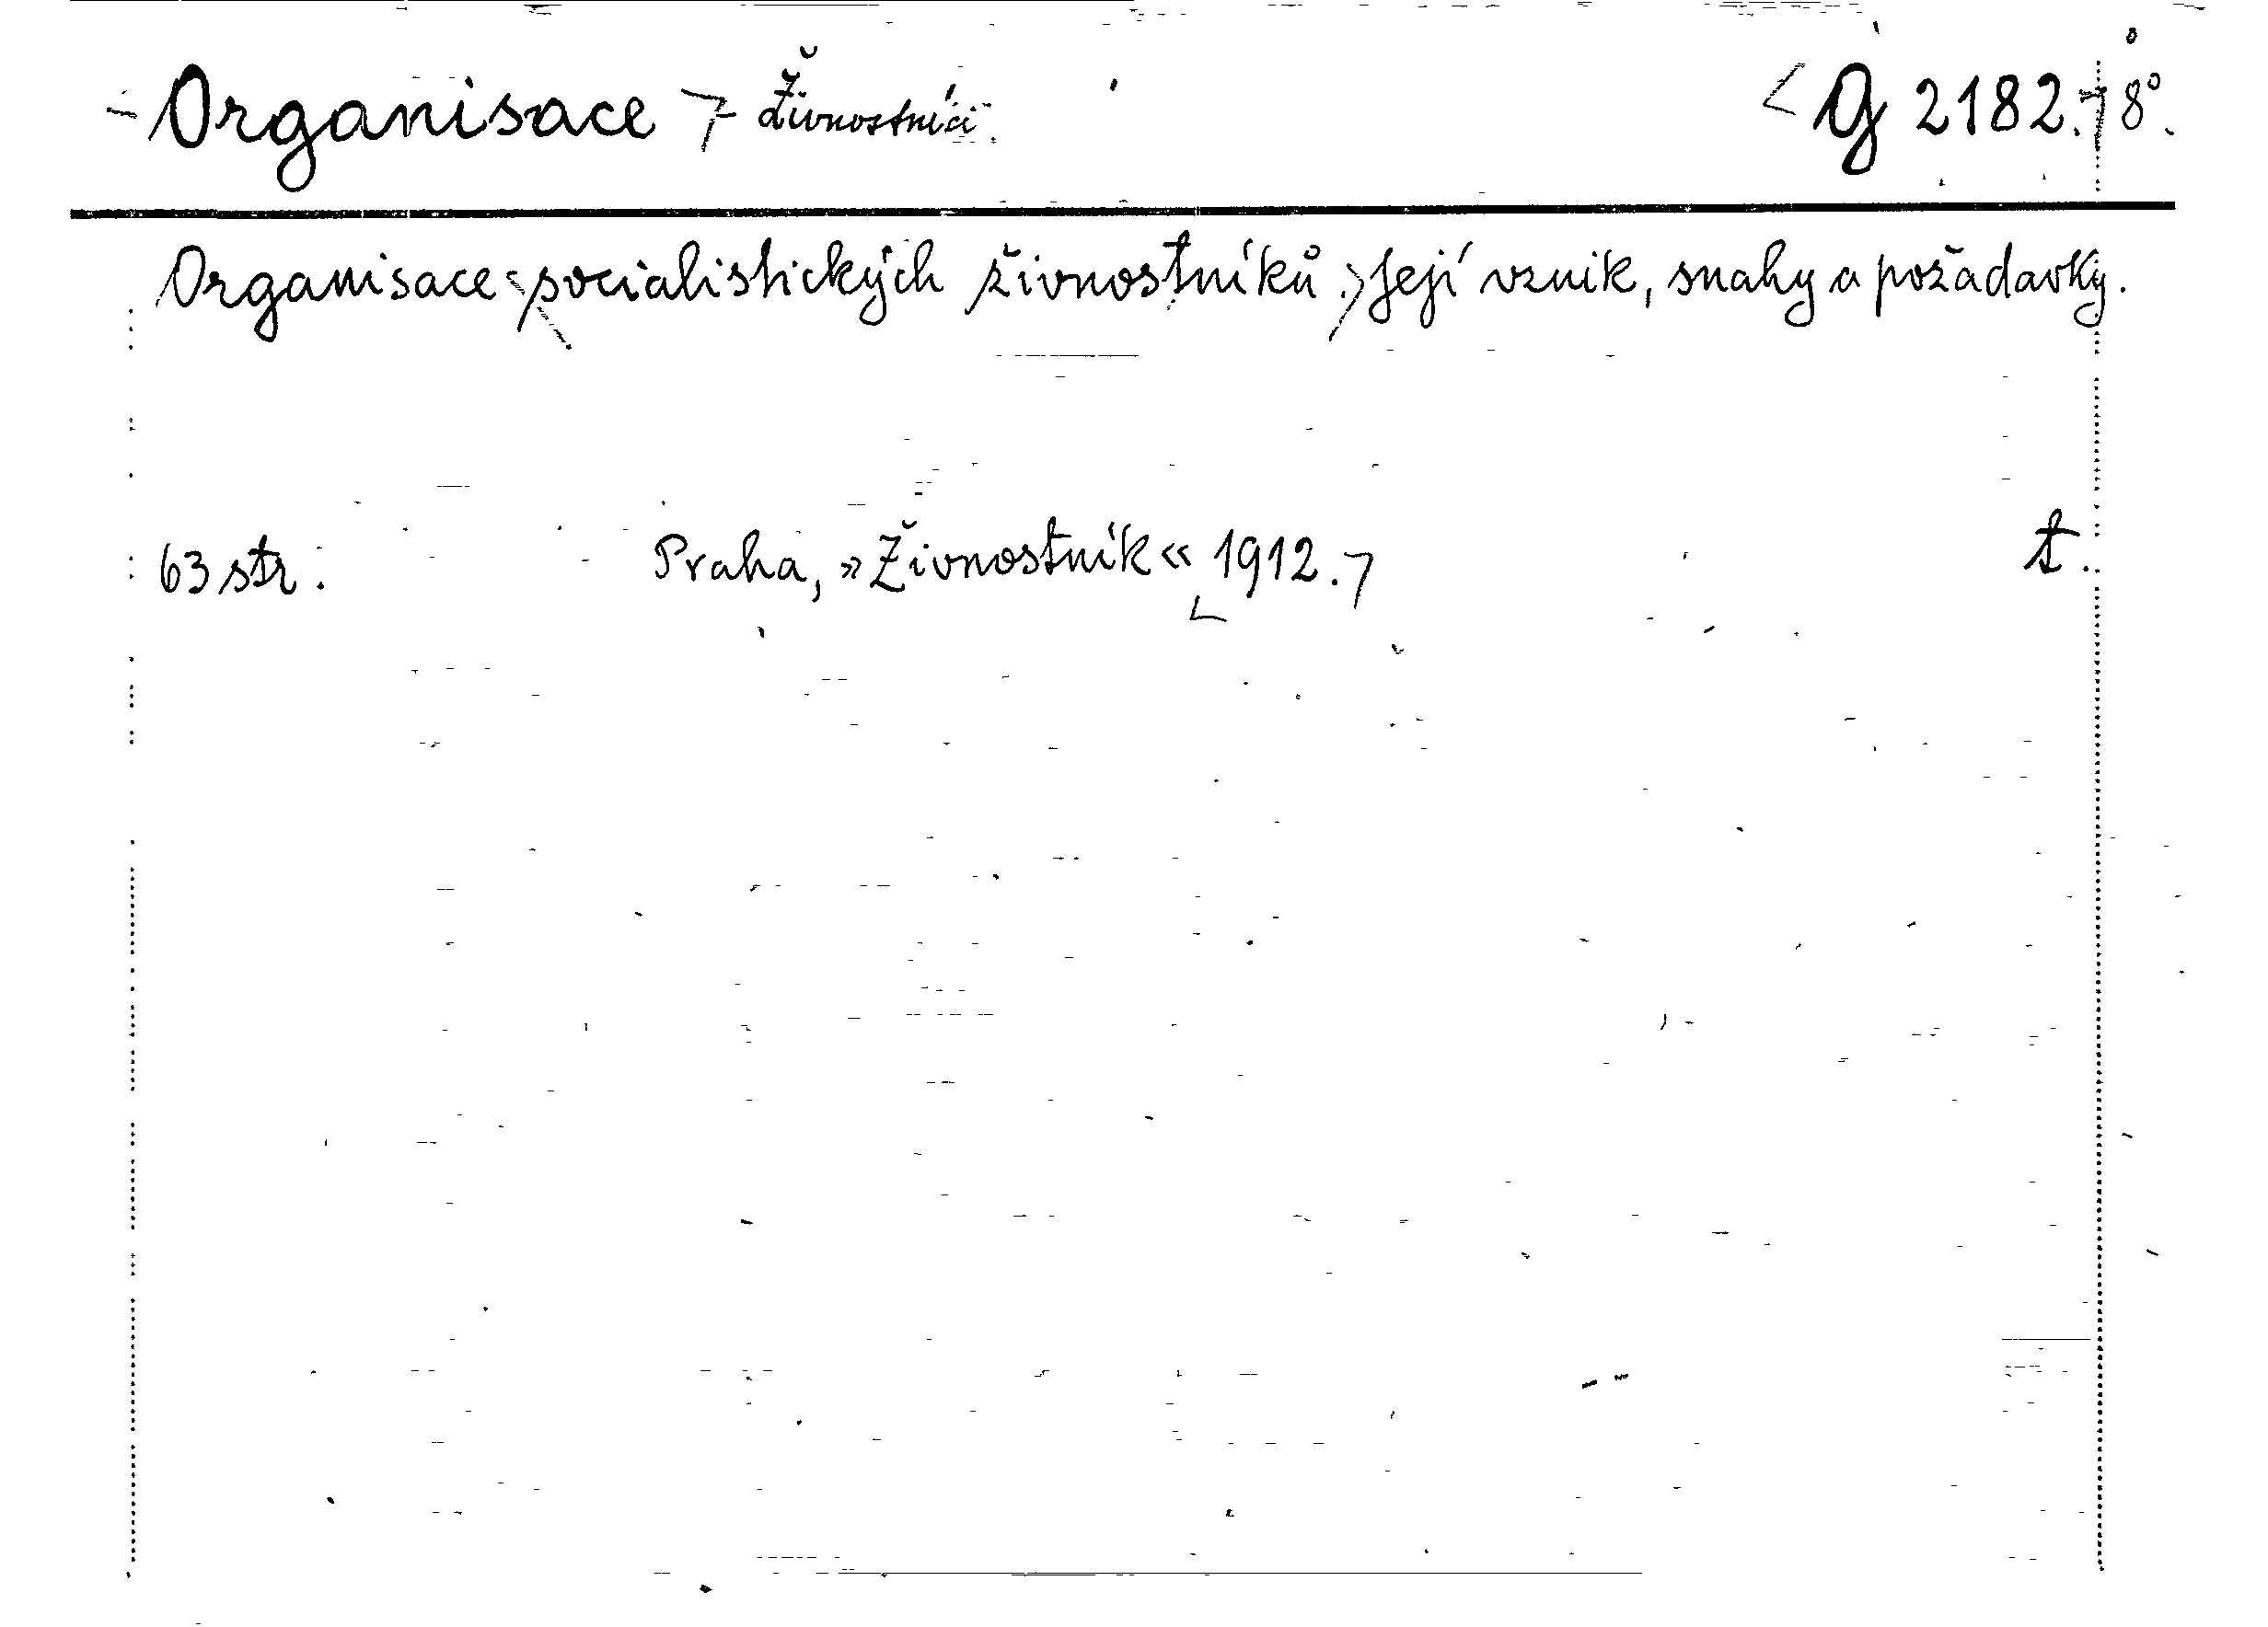 Organisace Živnostníci. G 2182. 8°.
Organisace socialistických živnostníků. Její vznik, snahy a požadavky.
63 str. Praha, »Živnostník« 1912. t.